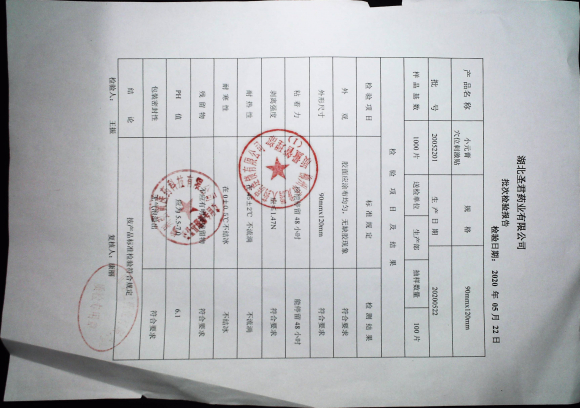 湖北圣君药业有限公司
批次检验报告
检验日期：2020 年 05 月 22 日
产品名称 小元膏 穴位刺激贴 规格 90mmx120mm
批号 20052201 生产日期 20200522
样品基数 1000 片 送检单位 生产部 抽样数量 100 片
检验项目及结果
检验项目 标准规定 检测结果
外观 胶面应涂布均匀，无缺胶现象 符合要求
外形尺寸 90mmx120mm 符合要求
粘着力 48 小时 能停留 48 小时
剥离强度 1.47N 符合要求
耐热性 不流淌 不流淌
耐寒性 不结冰 不结冰
残留物 符合要求
PH 值 5.5-7.0 6.1
包装密封性 符合要求
结论 按产品标准检验符合规定
检验人： 王振 复核人：